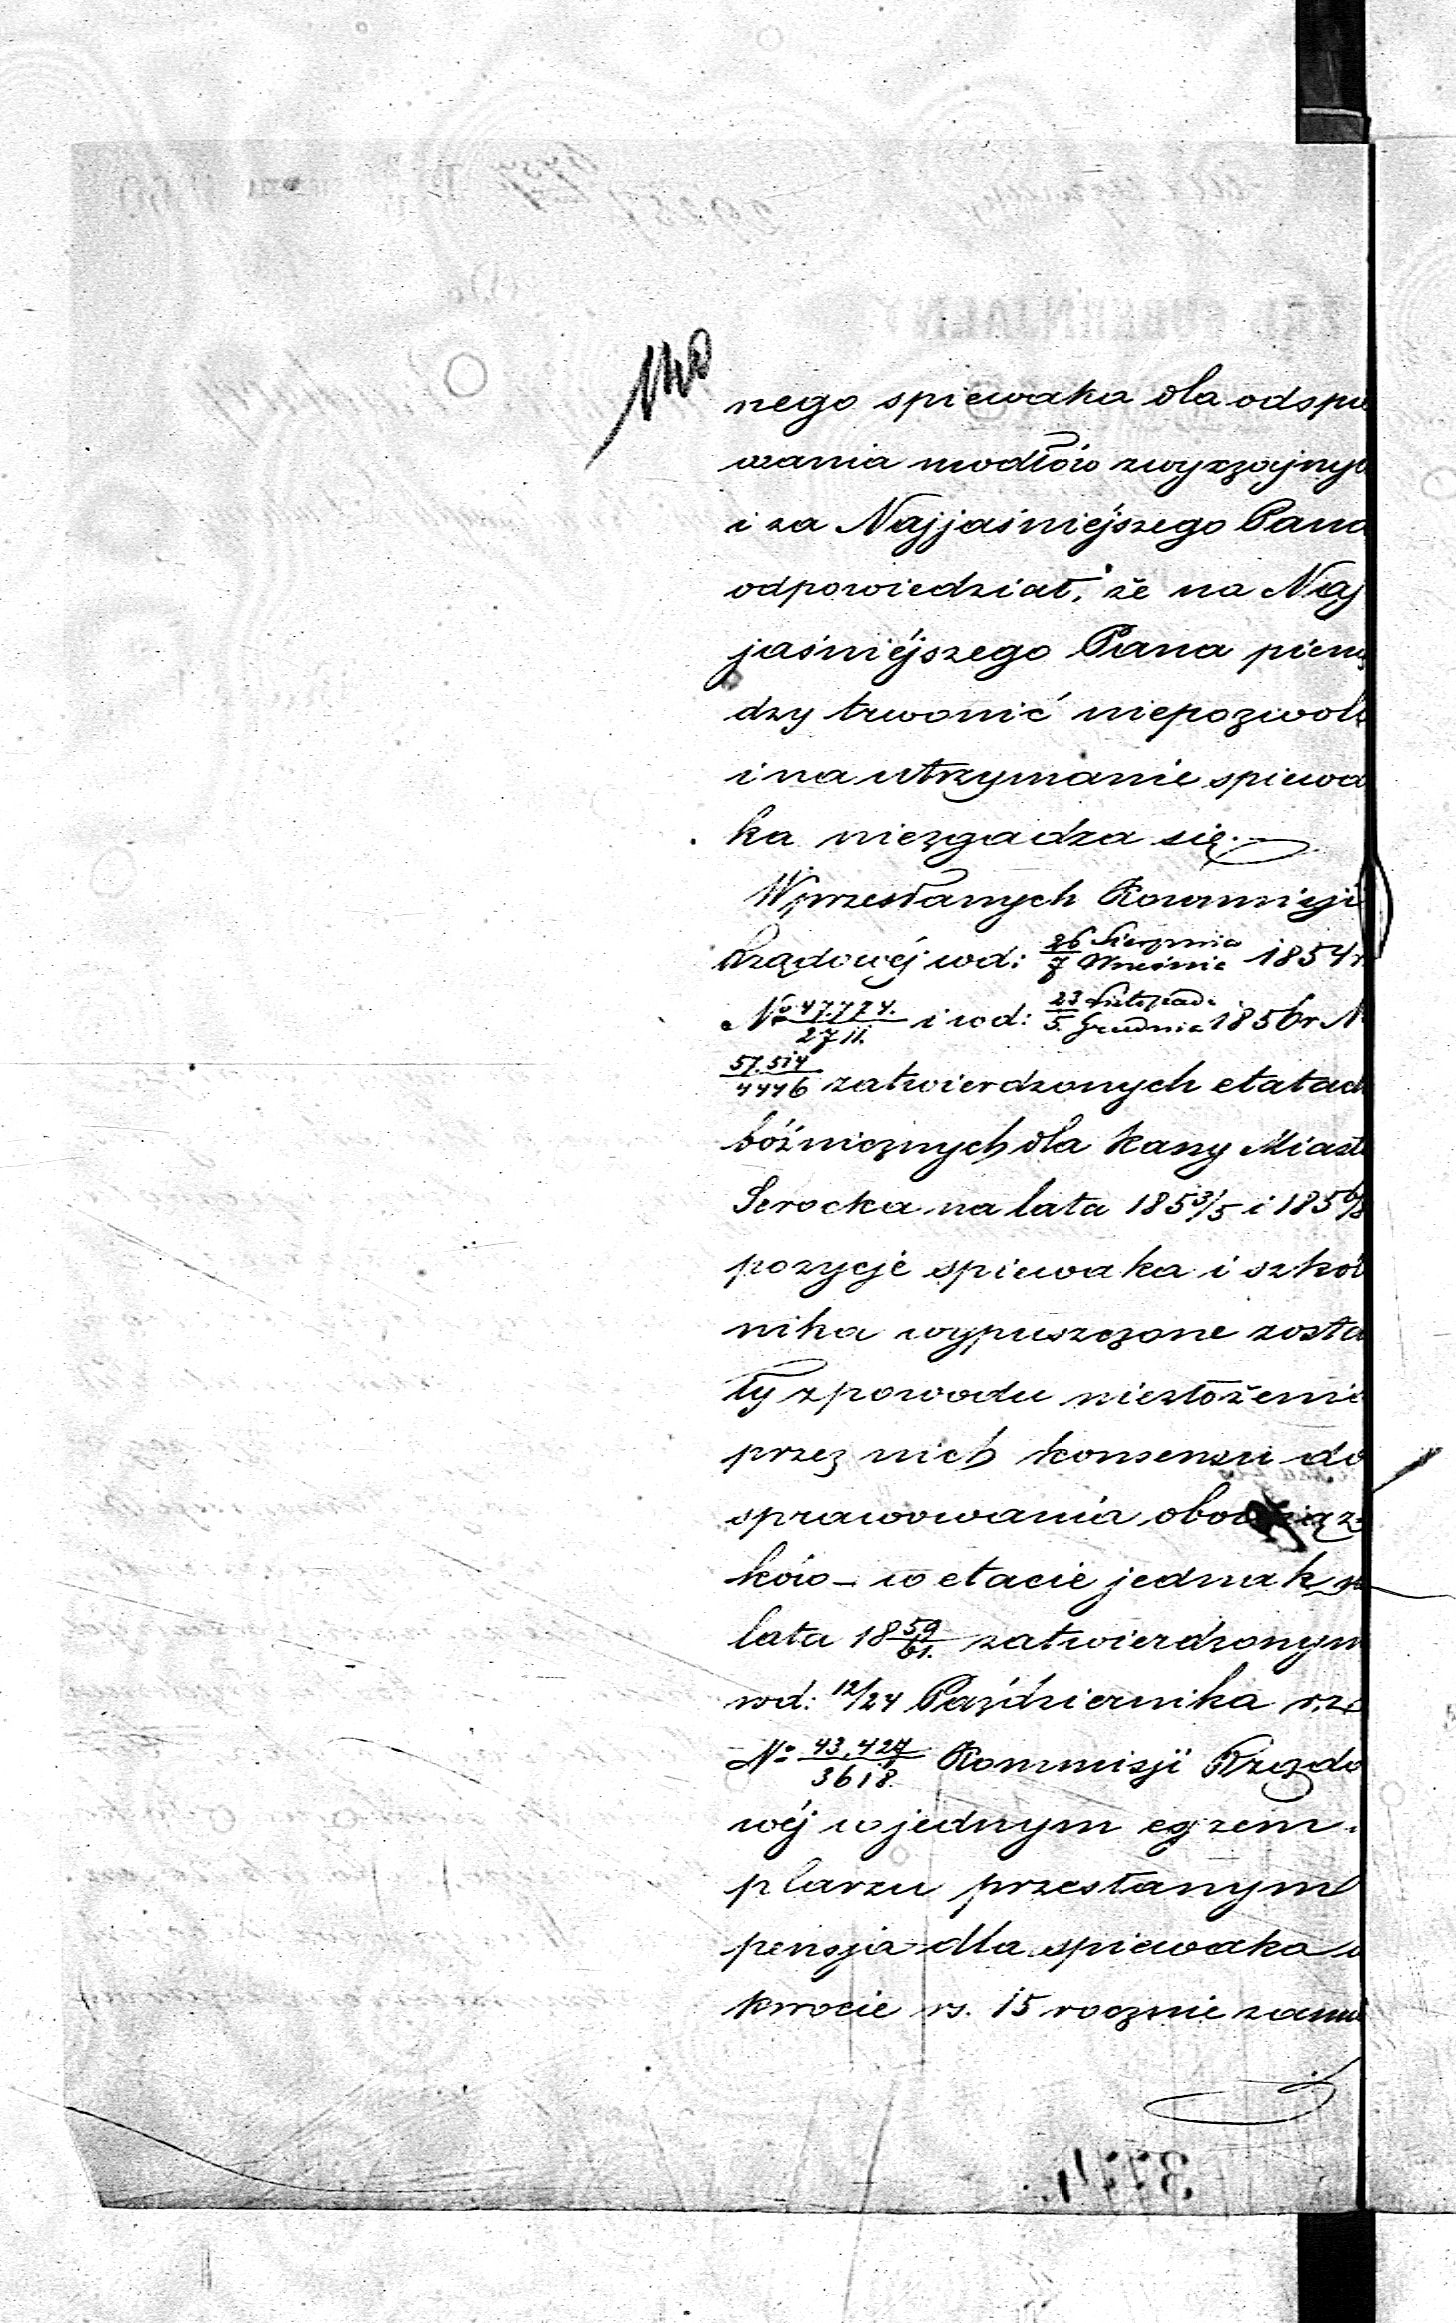 nego spiewaka dla odspie
wania modłów zwyczajnych
i za Najjaśniejszego Pana
odpowiedział, że na Naj
jaśniéjszego Pana pienię
dzy trwonić niepozwoli
i na utrzymanie spiewa
ka niezgadza się.
W przesłanych Kommisji
Rządowéj w d: 26 Sierpnia/7 Września 1854 r
No 47,774./2711. i w d: 23 Listopad:/5. Grudnia 1856 r N
57.514/4446 zatwierdzonych etatach
bóźnicznych dla kassy Miasta
Serocka na lata 1853/5 i 1856/8
pozycje spiewaka i szkól
nika wypuszczone zosta
ły z powodu niezłożenia
przez nich konsensu do
sprawowania obowiąz
ków – w etacie jednak na
lata 1859/61. zatwierdzonym
w d: 12/24 Października r.z.
No 43,427/3618. Kommisji Rządo
wéj w jednym egzem
plarzu przesłanym
pensja dla spiewaka w
kwocie rs. 15 rocznie zamie